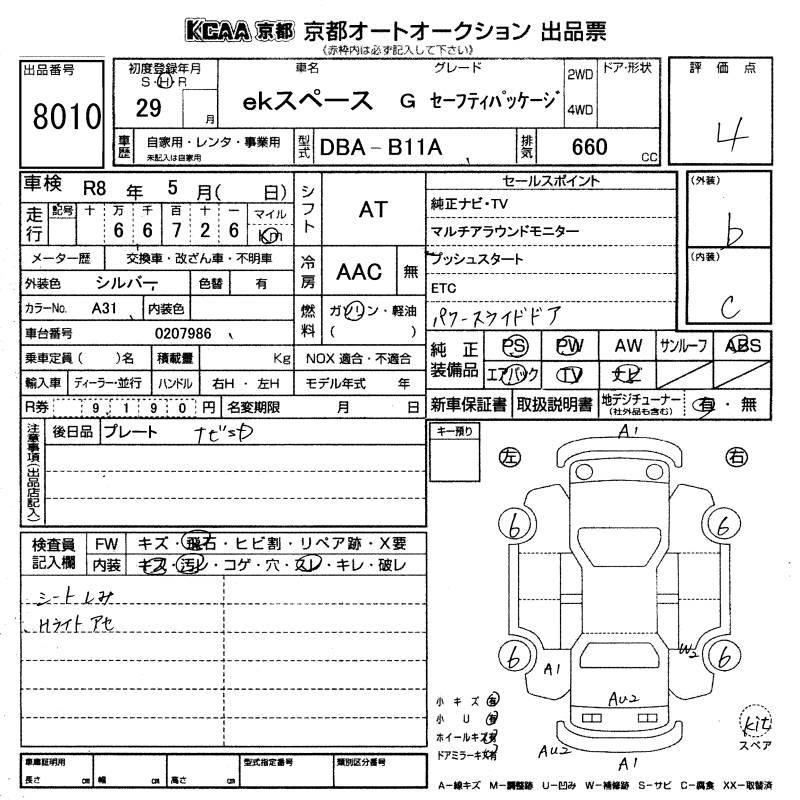 KCAA 京都 京都オートオークション 出品票
《赤枠内は必ず記入して下さい》
出品番号
8010
初度登録年月
S・H・R
29 月
車名 グレード
ekスペース G セーフティパッケージ
2WD
4WD
ドア・形状
評価点
4
車歴 自家用・レンタ・事業用
未記入は自家用
型式 DBA-B11A
排気 660 cc
車検 R8 年 5 月( 日)
走行 記号 十 万 千 百 十 一 マイル
6 6 7 2 6 Km
メーター歴 交換車・改ざん車・不明車
外装色 シルバー 色替 有
カラーNo. A31 内装色
車台番号 0207986
乗車定員( )名 積載量 Kg NOX 適合・不適合
輸入車 ディーラー・並行 ハンドル 右H・左H モデル年式 年
R券 9,190円 名変期限 月 日
シフト AT
冷房 AAC 無
燃料 ガソリン・軽油
( )
セールスポイント
純正ナビ・TV
マルチアラウンドモニター
プッシュスタート
ETC
パワースライドドア
(外装)
b
(内装)
C
純正装備品 PS PW AW サンルーフ ABS
エアバック TV ナビ
新車保証書 取扱説明書 地デジチューナー
(社外品も含む) 有・無
注意事項(出品店記入)
後日品 プレート ナビSD
キー預り
検査員記入欄
FW キズ・飛石・ヒビ割・リペア跡・X要
内装 キズ・汚レ・コゲ・穴・スレ・キレ・破レ
シートしみ
Hライトアセ
左 右
A1
6 6
6 6
A1 W2
AU2
AU2
A1
小キズ 有
小U 有
ホイールキズ 有
ドアミラーキズ 有
kit
スペア
車庫証明用
長さ cm 幅 cm 高さ cm
型式指定番号 類別区分番号
A-線キズ M-調整跡 U-凹み W-補修跡 S-サビ C-腐食 XX-取替済